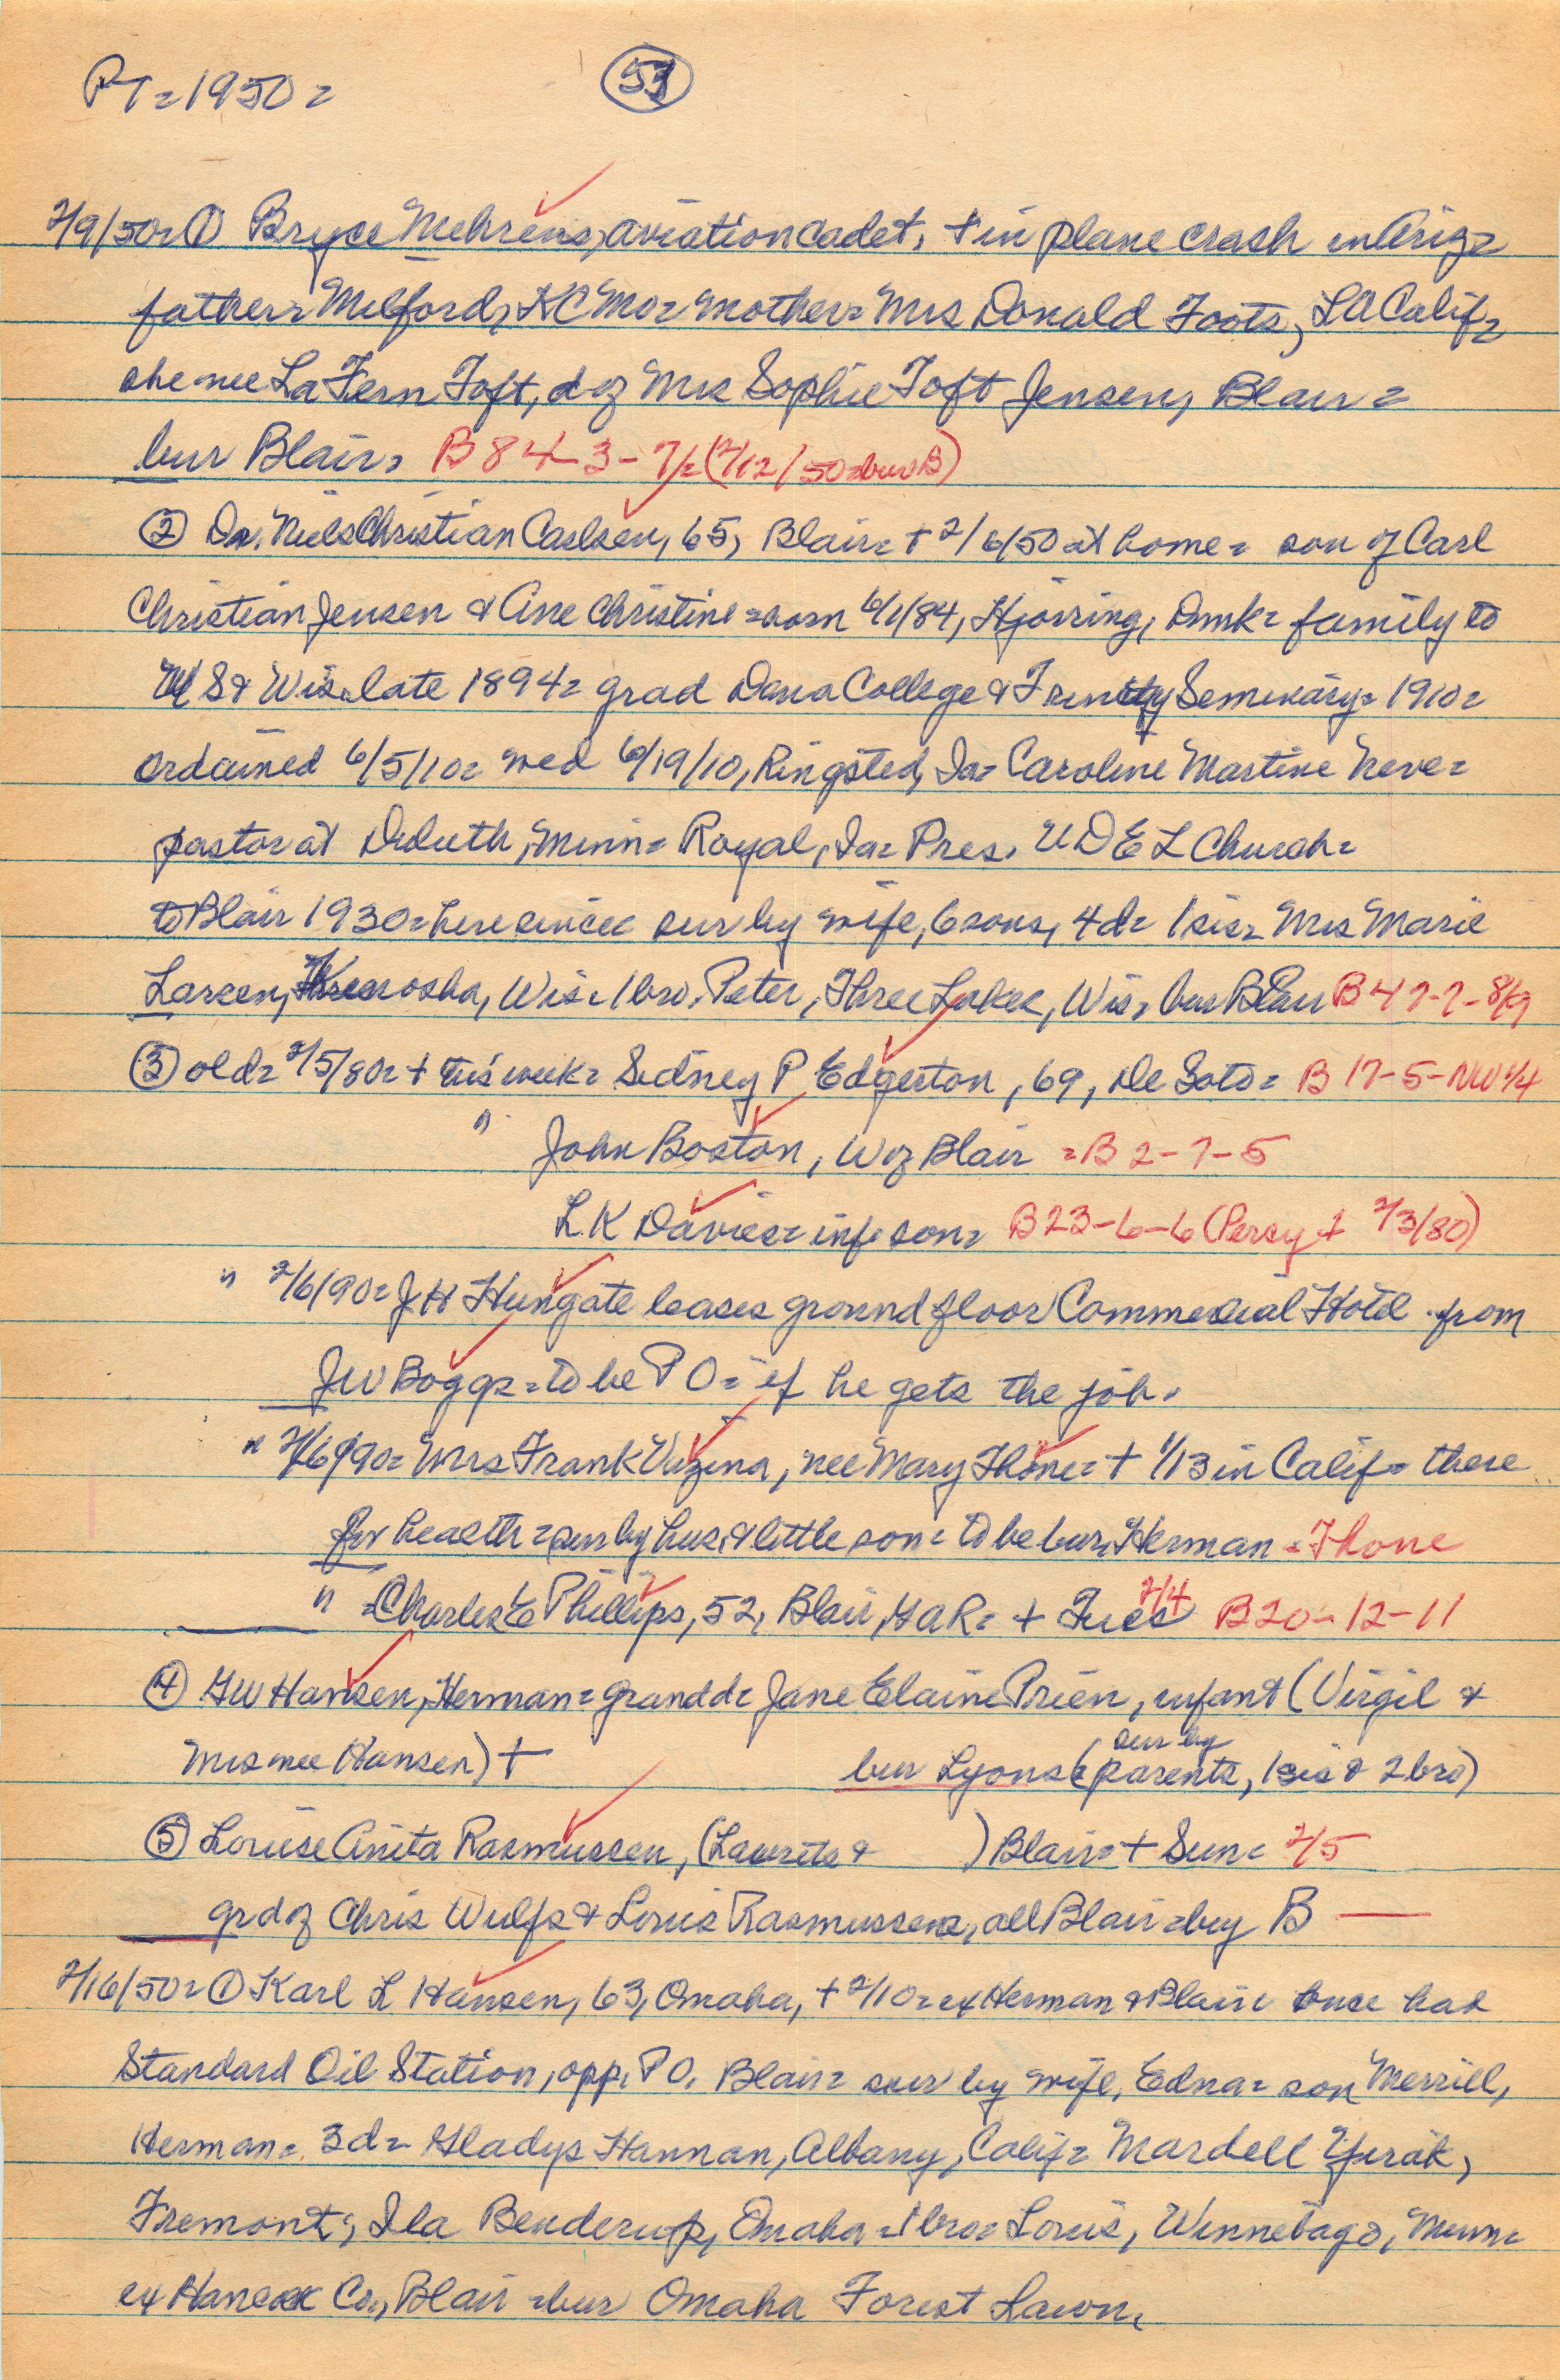 PT = 1950 =
53
2/9/50 = ① Bryce Mehrens, aviation cadet, + in plane crash in Ariz =
father = Milford, KC Mo = mother = Mrs Donald Foots, LA Calif =
she nee LaFern Toft, d of Mrs Sophie Toft Jensen, Blair =
bur Blair, B 84-3-7½ (2/12/50 = bur B)
② Dr. Niels Christian Carlsen, 65, Blair = + 2/6/50 at home = son of Carl
Christian Jensen & Ane Christine = born 6/1/84, Hjorring, Dnmk = family to
U S & Wis. late 1894 = grad Dana College & Trinity Seminary = 1910 =
ordained 6/5/10 = wed 6/19/10, Ringsted, Ia = Caroline Martine Neve =
pastor at Duluth, Minn = Royal, Ia = Pres. U D E L Church =
to Blair 1930 = here since = sur by wife, 6 sons, 4 d = 1 sis = Mrs Marie
Larsen, Kenosha, Wis = 1 bro. Peter, Three Lakes, Wis = bur Blair B 47-7-8/9
③ old = 2/5/80 = + this week = Sidney P Edgerton, 69, De Soto = B 17-5-NW ¼
" John Boston, W of Blair = B 2-7-5
L K Davies = inf. son = B 23-6-6 (Percy + 2/3/80)
" 2/6/90 = J H Hungate leases ground floor Commercial Hotel from
J W Boggs = to be P O = if he gets the job.
" 2/6/90 = Mrs Frank Vuzina, nee Mary Thone = + 1/13 in Calif = there
for health = sur by hus. & little son = to be bur. Herman = Thone
" = Charles E Phillips, 52, Blair, GAR = + Tues 2/4 B 20-12-11
④ GW Hansen, Herman = grand d = Jane Elaine Prien, infant (Virgil &
Mrs nee Hansen) + bur Lyons (sur by parents, 1 sis & 2 bro)
⑤ Louise Anita Rasmussen, (Laurits & ) Blair = + Sun = 2/5
gr d of Chris Wulfs & Louis Rasmussens, all Blair = bur B —
2/16/50 = ① Karl L Hansen, 63, Omaha, + 2/10 = ex Herman & Blair = once had
Standard Oil Station, opp. P O. Blair = sur by wife, Edna = son Merrill,
Herman = 3 d = Gladys Hannan, Albany, Calif = Mardell Yerak,
Fremont; Ila Benderup, Omaha = 1 bro = Louis, Winnebago, Minn =
ex Hancock Co., Blair = bur Omaha Forest Lawn.